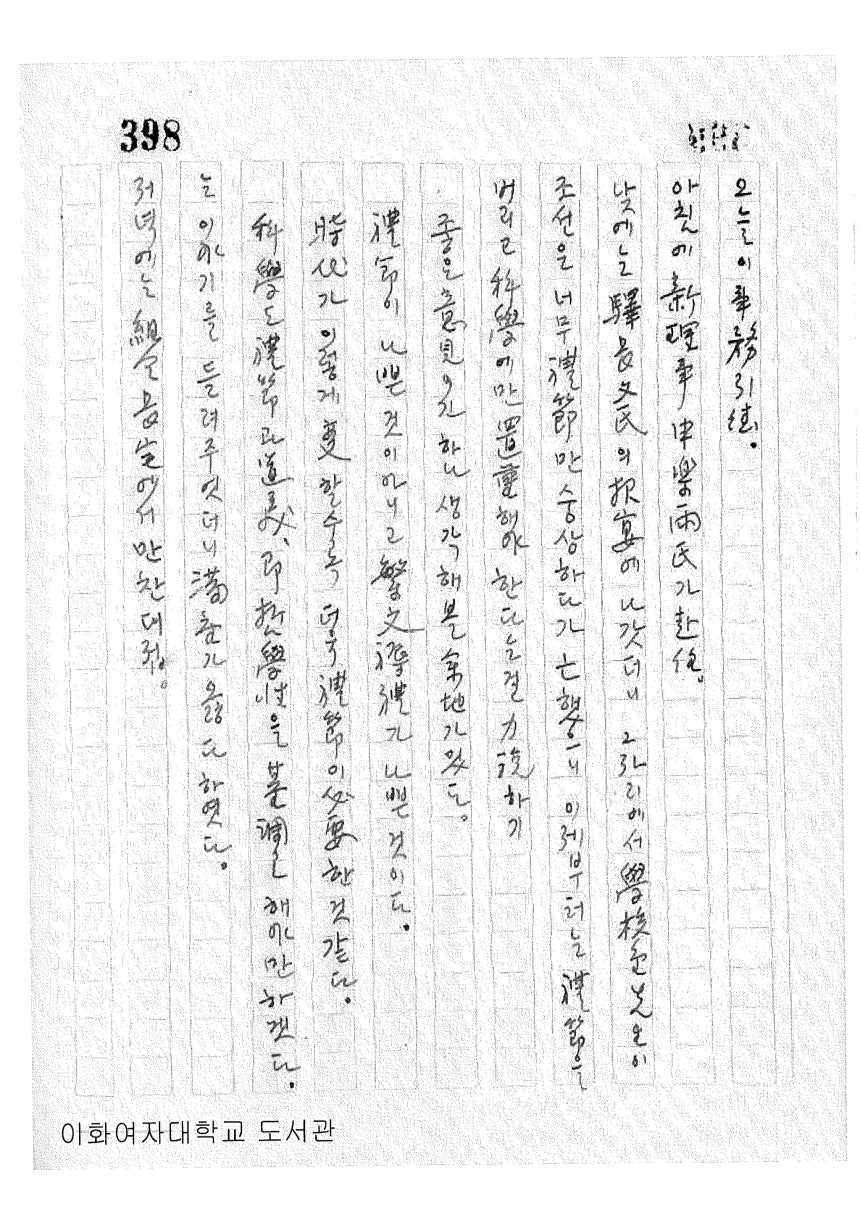 398
오늘이 事務引継。
아침에 新理事 申 両氏가 赴任。
낮에는 驛長文氏의 招宴에 나갓더니 그 자리에서 學校 先生이
조선은 너무 禮節만 숭상하다가 亡했으니 이제부터는 禮節을
버리고 科學에만 置重해야 한다는걸 力說하기
좋은 意見이라 하나 생각해볼 余地가 있다。
禮節이 나쁜것이 아니고 繁文 禮가 나쁜것이다。
時代가 이렇게 変할수록 더욱 禮節이 必要한것 같다。
科學도 禮節과 道義、即 哲學性을 基調로 해야만 하겟다。
는 이야기를 들려주엇더니 가 옳다 하엿다。
저녁에는 組合長宅에서 만찬대접。
이화여자대학교 도서관